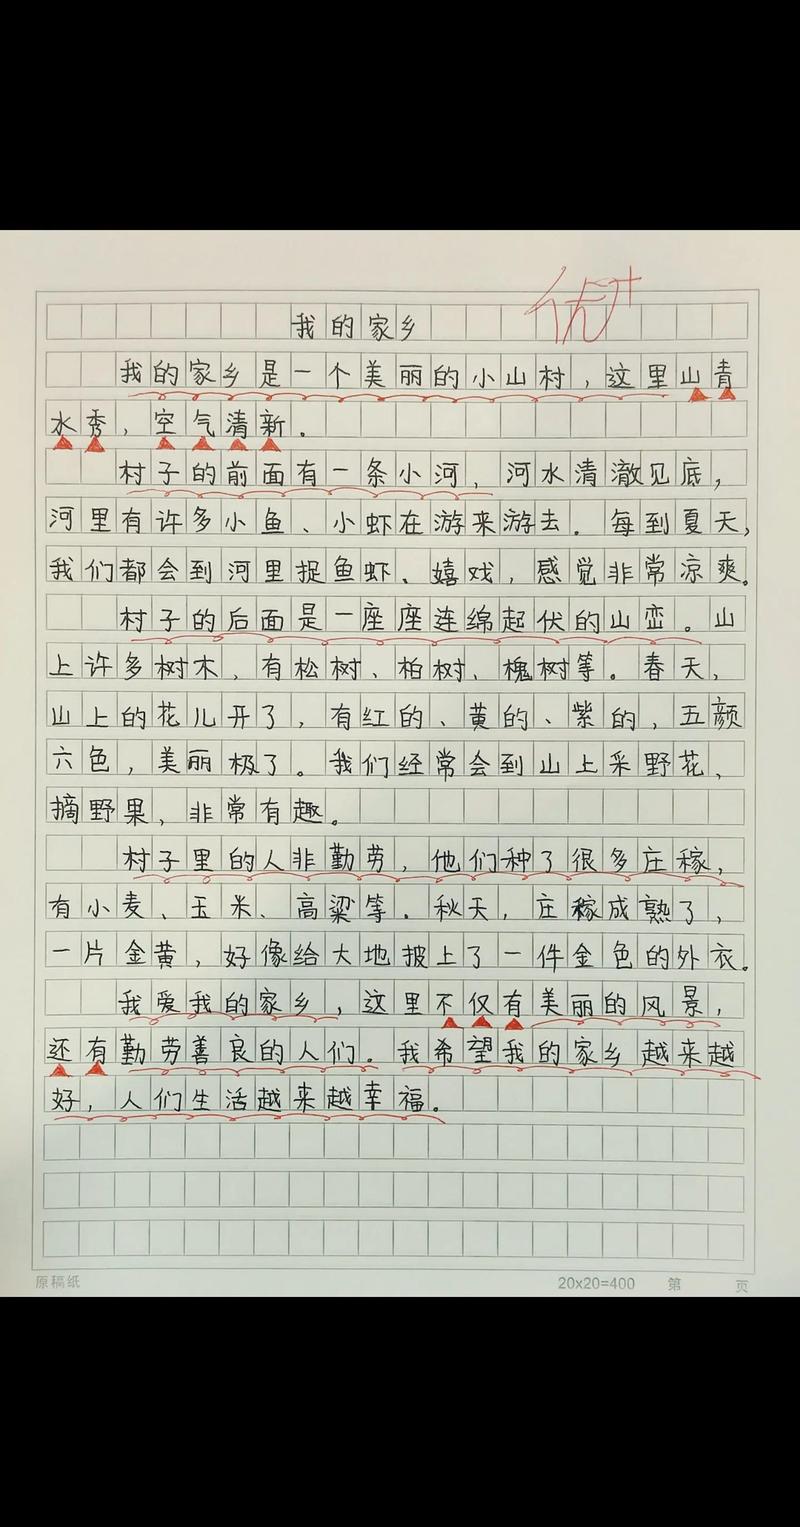 优+
我的家乡
我的家乡是一个美丽的小山村，这里山青
水秀，空气清新。
村子的前面有一条小河，河水清澈见底，
河里有许多小鱼、小虾在游来游去．每到夏天，
我们都会到河里捉鱼虾、嬉戏，感觉非常凉爽。
村子的后面是一座座连绵起伏的山峦。山
上许多树木，有松树、柏树、槐树等。春天，
山上的花儿开了，有红的、黄的、紫的，五颜
六色，美丽极了。我们经常会到山上采野花、
摘野果，非常有趣。
村子里的人非勤劳，他们种了很多庄稼，
有小麦、玉米、高粱等．秋天，庄稼成熟了，
一片金黄，好像给大地披上了一件金色的外衣。
我爱我的家乡，这里不仅有美丽的风景，
还有勤劳善良的人们。我希望我的家乡越来越
好，人们生活越来越幸福。
原稿纸 20x20=400 第 页